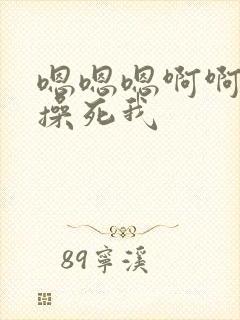 嗯嗯嗯啊啊
操死我
89寧溪